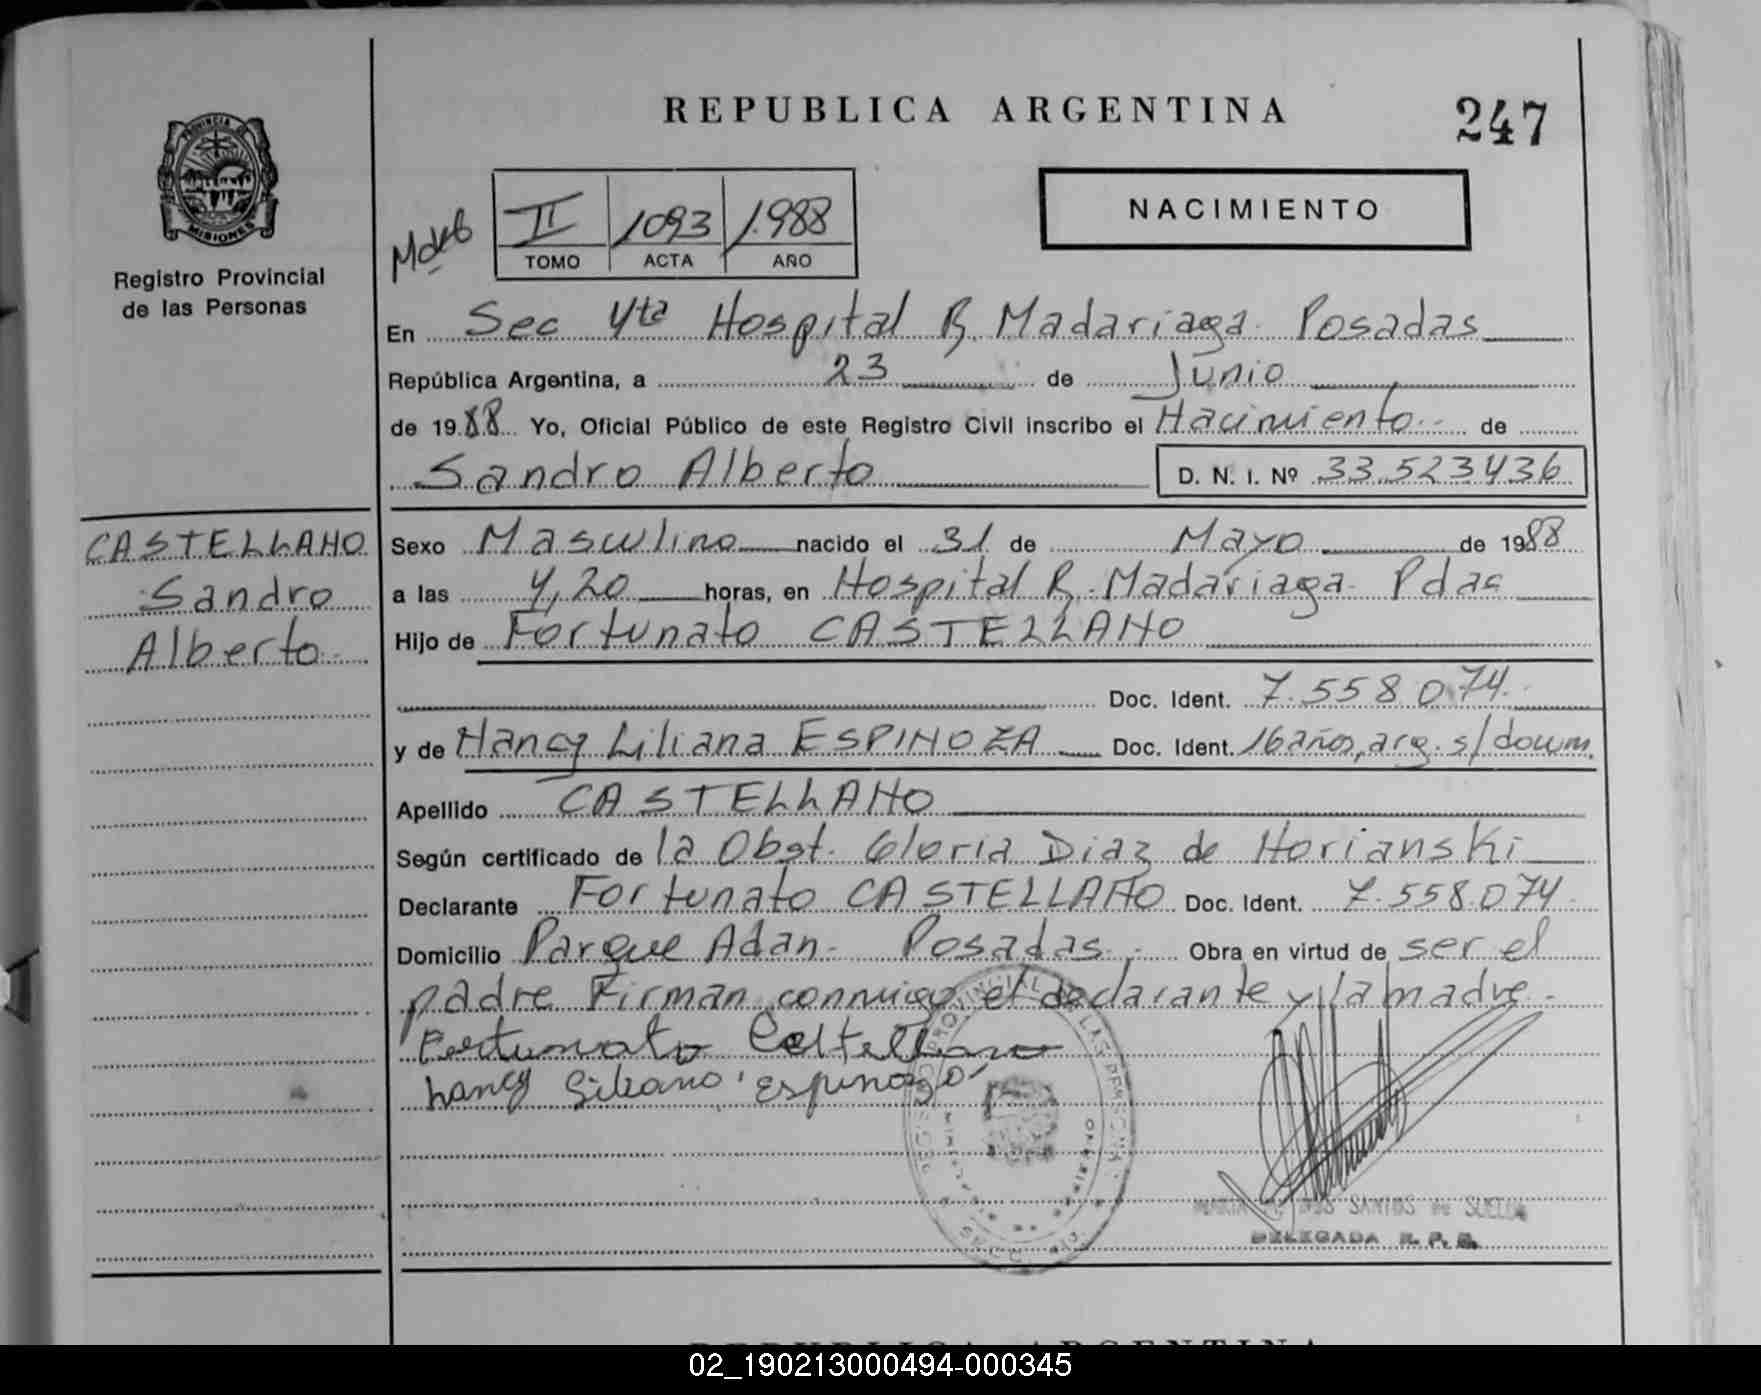 REPUBLICA ARGENTINA
247
PROVINCIA DE
MISIONES
Registro Provincial
de las Personas
II 1093 1.988
TOMO ACTA AÑO
NACIMIENTO
En Sec 4ta Hospital R. Madariaga. Posadas
República Argentina, a 23 de Junio
de 1988 Yo, Oficial Público de este Registro Civil inscribo el Nacimiento de
Sandro Alberto D. N. I. Nº 33.523436
CASTELLANO
Sandro
Alberto
Sexo Masculino nacido el 31 de Mayo de 1988
a las 4,20 horas, en Hospital R. Madariaga- Pdas
Hijo de Fortunato CASTELLANO
Doc. Ident. 7.558.074.
y de Nancy Liliana ESPINOZA Doc. Ident. 16 años, arg. s/docum.
Apellido CASTELLANO
Según certificado de la Obst. Gloria Diaz de Horianski
Declarante Fortunato CASTELLANO Doc. Ident. 7.558.074
Domicilio Parque Adan- Posadas.- Obra en virtud de ser el
padre Firman conmigo el declarante y la madre.-
Fortunato Castellano
nancy Liliana Espinoza
SANTOS de
DELEGADA R. P. P.
REPUBLICA ARGENTINA
02_190213000494-000345